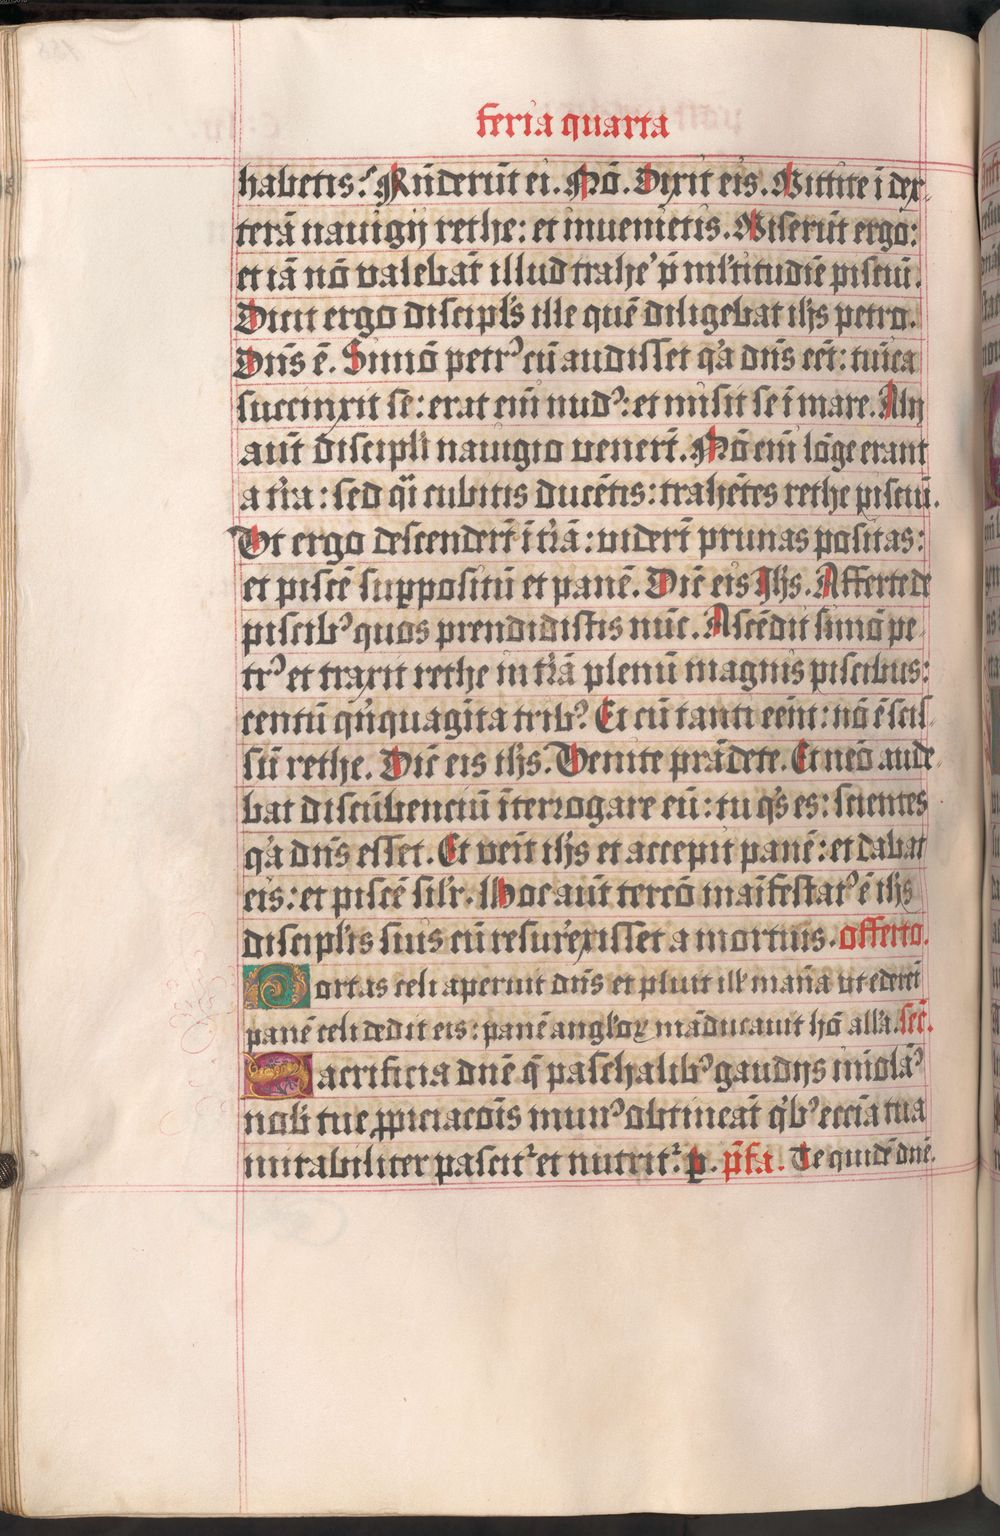 feria quarta
habetis? Rn̄derūt ei. Nō. Dixit eis. Mittite ī dex-
terā nauigij rethe: et inuenietis. Miserūt ergo:
et iā nō valebāt illud trahe᾽ p̄ ml᾽titudīe pisciū.
Dixit ergo discipl᾽s ille quē diligebat ih᾽s petro.
Dn̄s ē. Simō petrꝰ cū audisset q᾽a dn̄s eēt: tunica
succinxit se: erat em̄ nudꝰ: et misit se ī mare. Alij
aūt discipli nauigio venert̄. Nō em̄ lōge erant
a tr̄a: sed q̈i cubitis ducētis: trahētes rethe pisciū.
Vt ergo descendert̄ ī tr̄ā: vidert̄ prunas positas:
et piscē suppositū et panē. Dic̄ eis Ih᾽s. Afferte de
piscibꝰ quos prendidistis nūc. Ascēdit simō pe-
trꝰ et traxit rethe in tr̄ā plenū magnis piscibus:
centū qn̄quagīta tribꝰ. Et cū tanti eēnt: nō ē scis-
sū rethe. Dic̄ eis ih᾽s. Venite prādete. Et nēo aude-
bat discūbenciū īterrogare eū: tu q᾽s es: scientes
q᾽a dn̄s esset. Et venit ih᾽s et accepit panē: et dabat
eis: et piscē sil᾽r. Hoc aūt tercō maīfestatꝰ ē ih᾽s
disciplis suis cū resur᾽exisset a mortuis. offerto.
Portas celi aperuit dn̄s et pluit ill᾽ māna ut ederēt
panē celi dedit eis: panē angl᾽oꝝ māducauit hō all᾽a. sec̄.
Sacrificia dn̄e q̄ paschalibꝰ gaudijs īmolāꝰ
nob᾽ tue ꝓpiciacōis munꝰ obtineāt q᾽bꝰ ecc̄ia tua
mirabiliter pascit᾽ et nutrit᾽. p. p̄fa. Te quidē dn̄e.